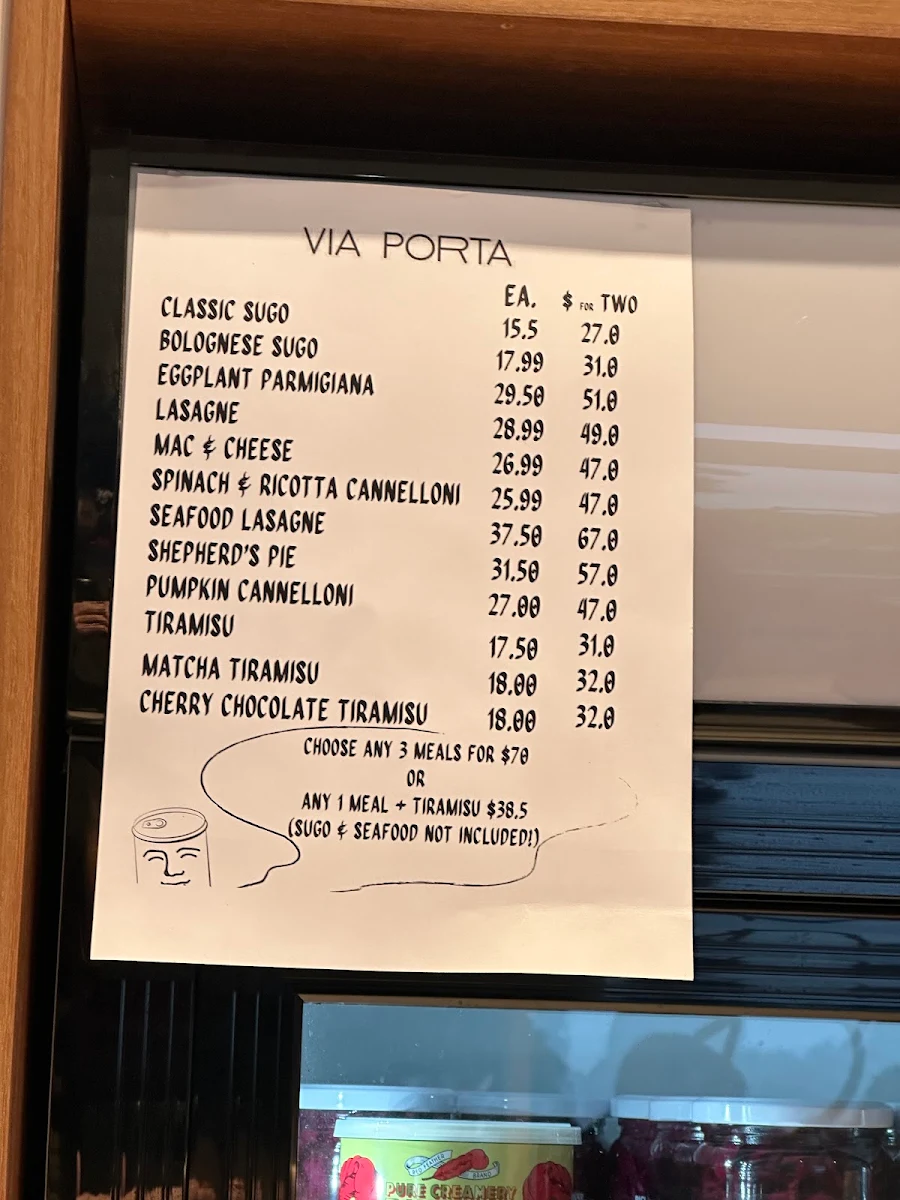 VIA PORTA
EA. $ FOR TWO
CLASSIC SUGO 15.5 27.0
BOLOGNESE SUGO 17.99 31.0
EGGPLANT PARMIGIANA 29.50 51.0
LASAGNE 28.99 49.0
MAC & CHEESE 26.99 47.0
SPINACH & RICOTTA CANNELLONI 25.99 47.0
SEAFOOD LASAGNE 37.50 67.0
SHEPHERD'S PIE 31.50 57.0
PUMPKIN CANNELLONI 27.00 47.0
TIRAMISU 17.50 31.0
MATCHA TIRAMISU 18.00 32.0
CHERRY CHOCOLATE TIRAMISU 18.00 32.0
CHOOSE ANY 3 MEALS FOR $70
OR
ANY 1 MEAL + TIRAMISU $38.5
(SUGO & SEAFOOD NOT INCLUDED!)
RED FEATHER BRAND
PURE CREAMERY